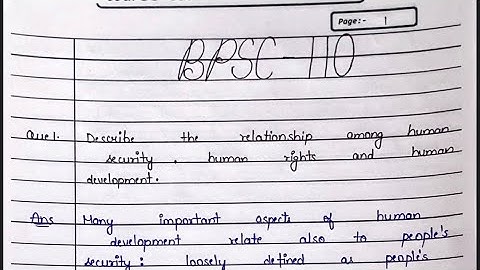 Page:- 1
BPSC-110
Que1. Describe the relationship among human
security, human rights and human
development.
Ans Many important aspects of human
development relate also to people's
security: loosely defined as people's